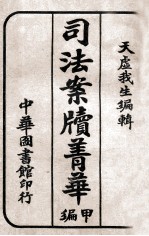 天虛我生編輯
司法案牘菁華
甲編
中華圖書館印行